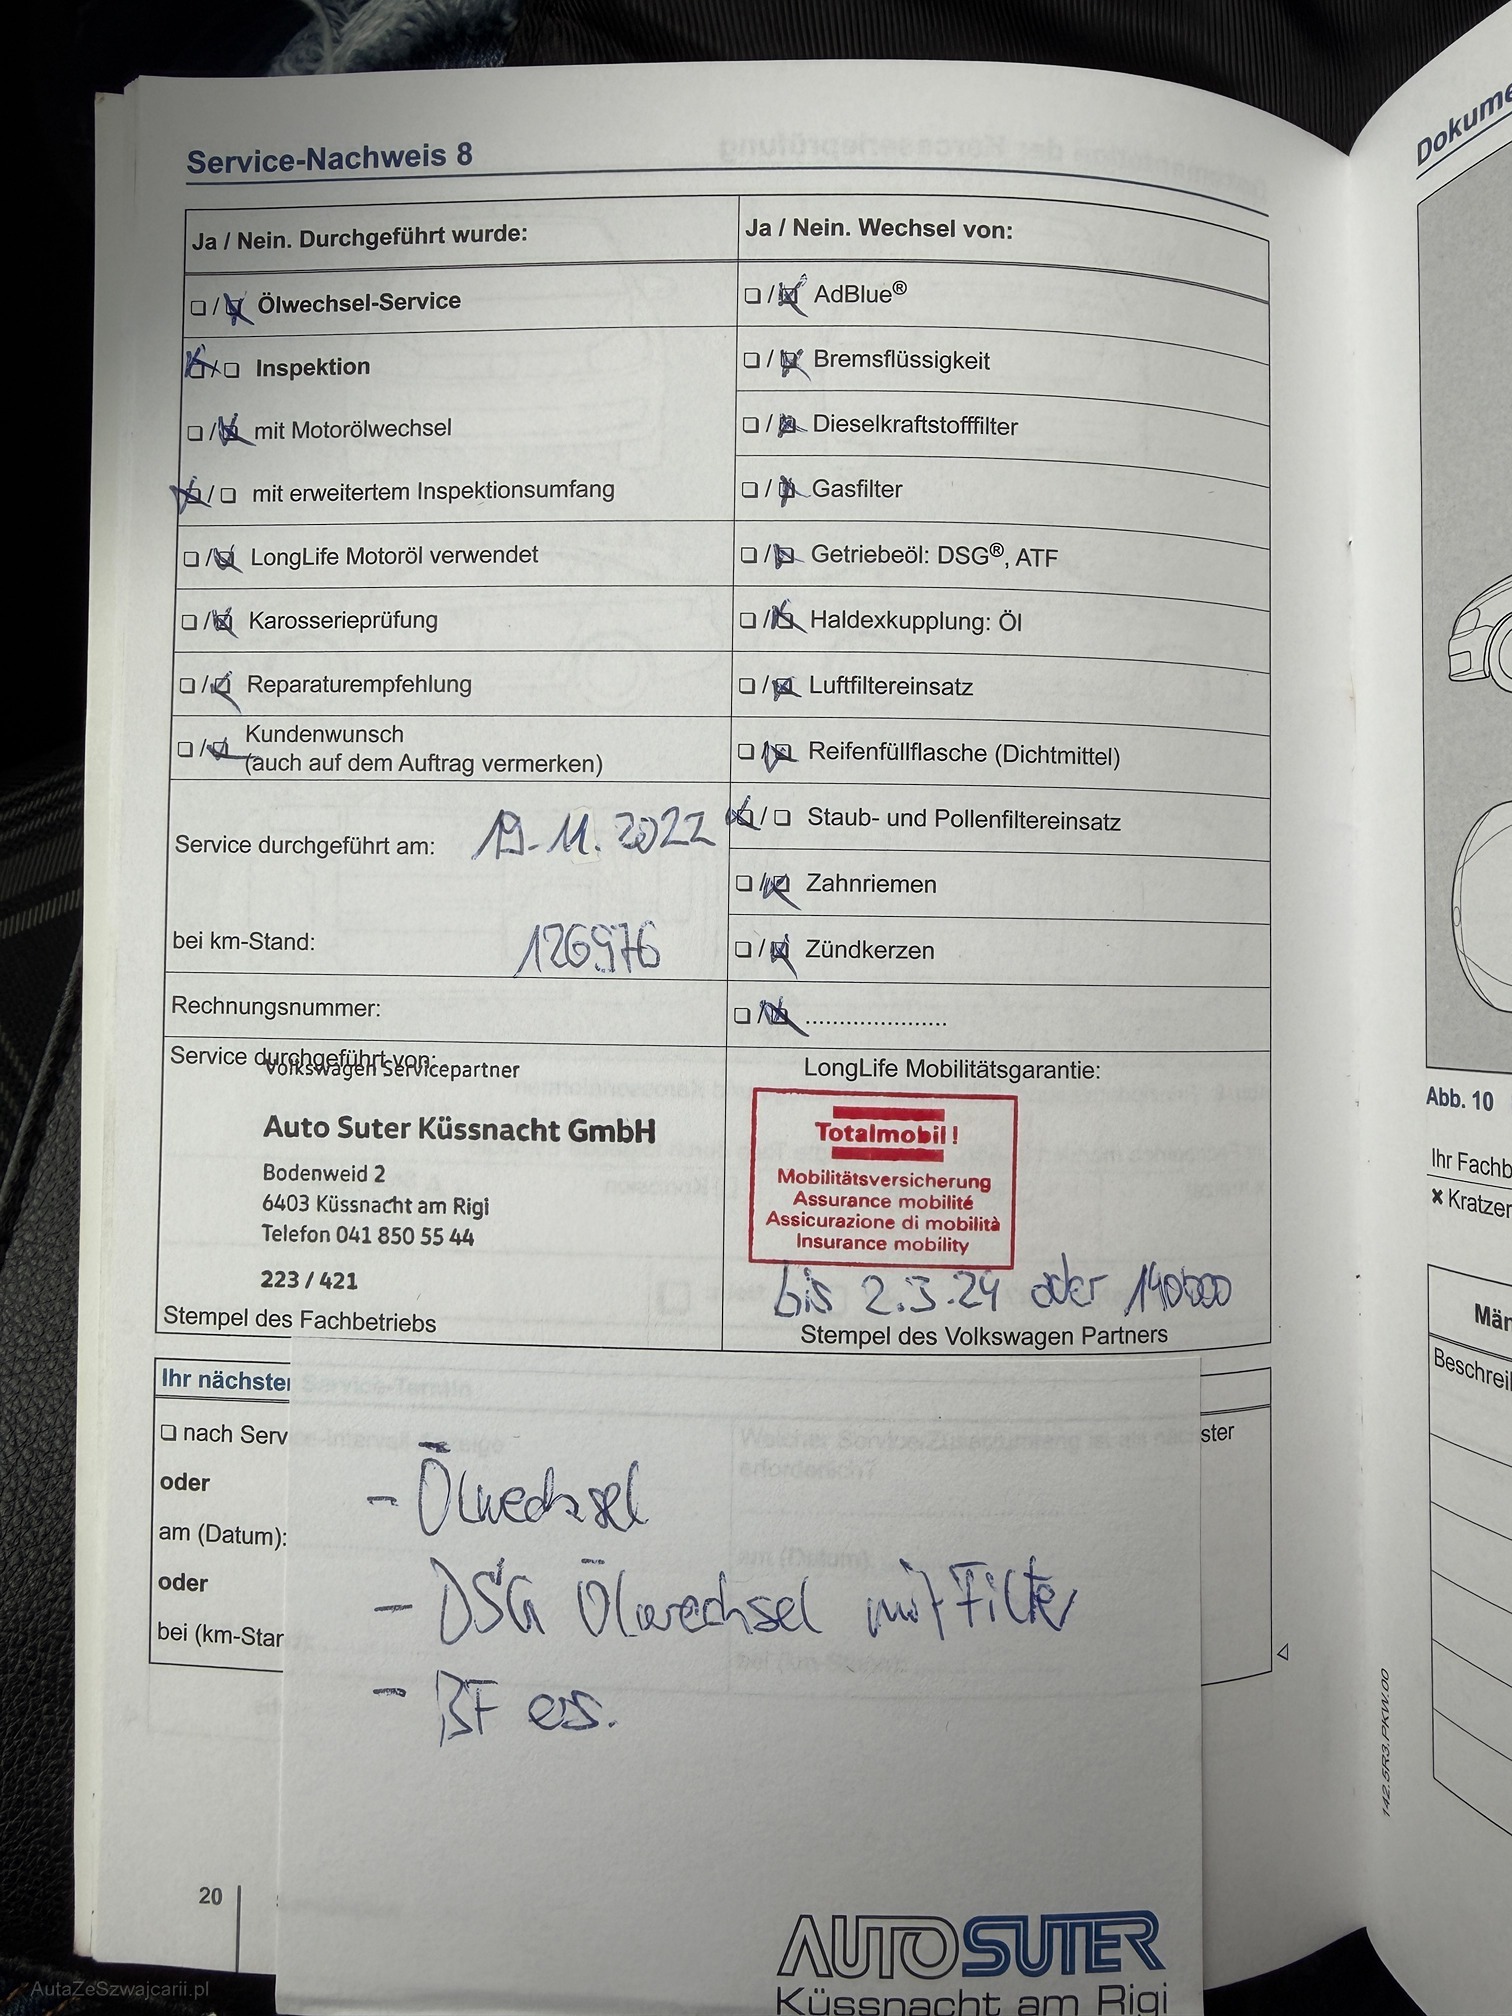 Service-Nachweis 8
Ja / Nein. Durchgeführt wurde:
Ölwechsel-Service
Inspektion
mit Motorölwechsel
mit erweitertem Inspektionsumfang
LongLife Motoröl verwendet
Karosserieprüfung
Reparaturempfehlung
Kundenwunsch
(auch auf dem Auftrag vermerken)
Service durchgeführt am: 19.11.2022
bei km-Stand: 126976
Rechnungsnummer:
Service durchgeführt von:
Volkswagen Servicepartner
Auto Suter Küssnacht GmbH
Bodenweid 2
6403 Küssnacht am Rigi
Telefon 041 850 55 44
223 / 421
Stempel des Fachbetriebs
Ja / Nein. Wechsel von:
AdBlue®
Bremsflüssigkeit
Dieselkraftstofffilter
Gasfilter
Getriebeöl: DSG®, ATF
Haldexkupplung: Öl
Luftfiltereinsatz
Reifenfüllflasche (Dichtmittel)
Staub- und Pollenfiltereinsatz
Zahnriemen
Zündkerzen
......................
LongLife Mobilitätsgarantie:
Totalmobil!
Mobilitätsversicherung
Assurance mobilité
Assicurazione di mobilità
Insurance mobility
bis 2.3.24 oder 140000
Stempel des Volkswagen Partners
Ihr nächster
nach Serv
oder
am (Datum):
oder
bei (km-Star
ster
- Ölwechsel
- DSG Ölwechsel mit Filter
- BF ers.
AUTO SUTER
Küssnacht am Rigi
20
142.5R3.PKW.00
Dokume
Abb. 10
Ihr Fachb
✖ Kratzer
Män
Beschreil
AutaZeSzwajcarii.pl